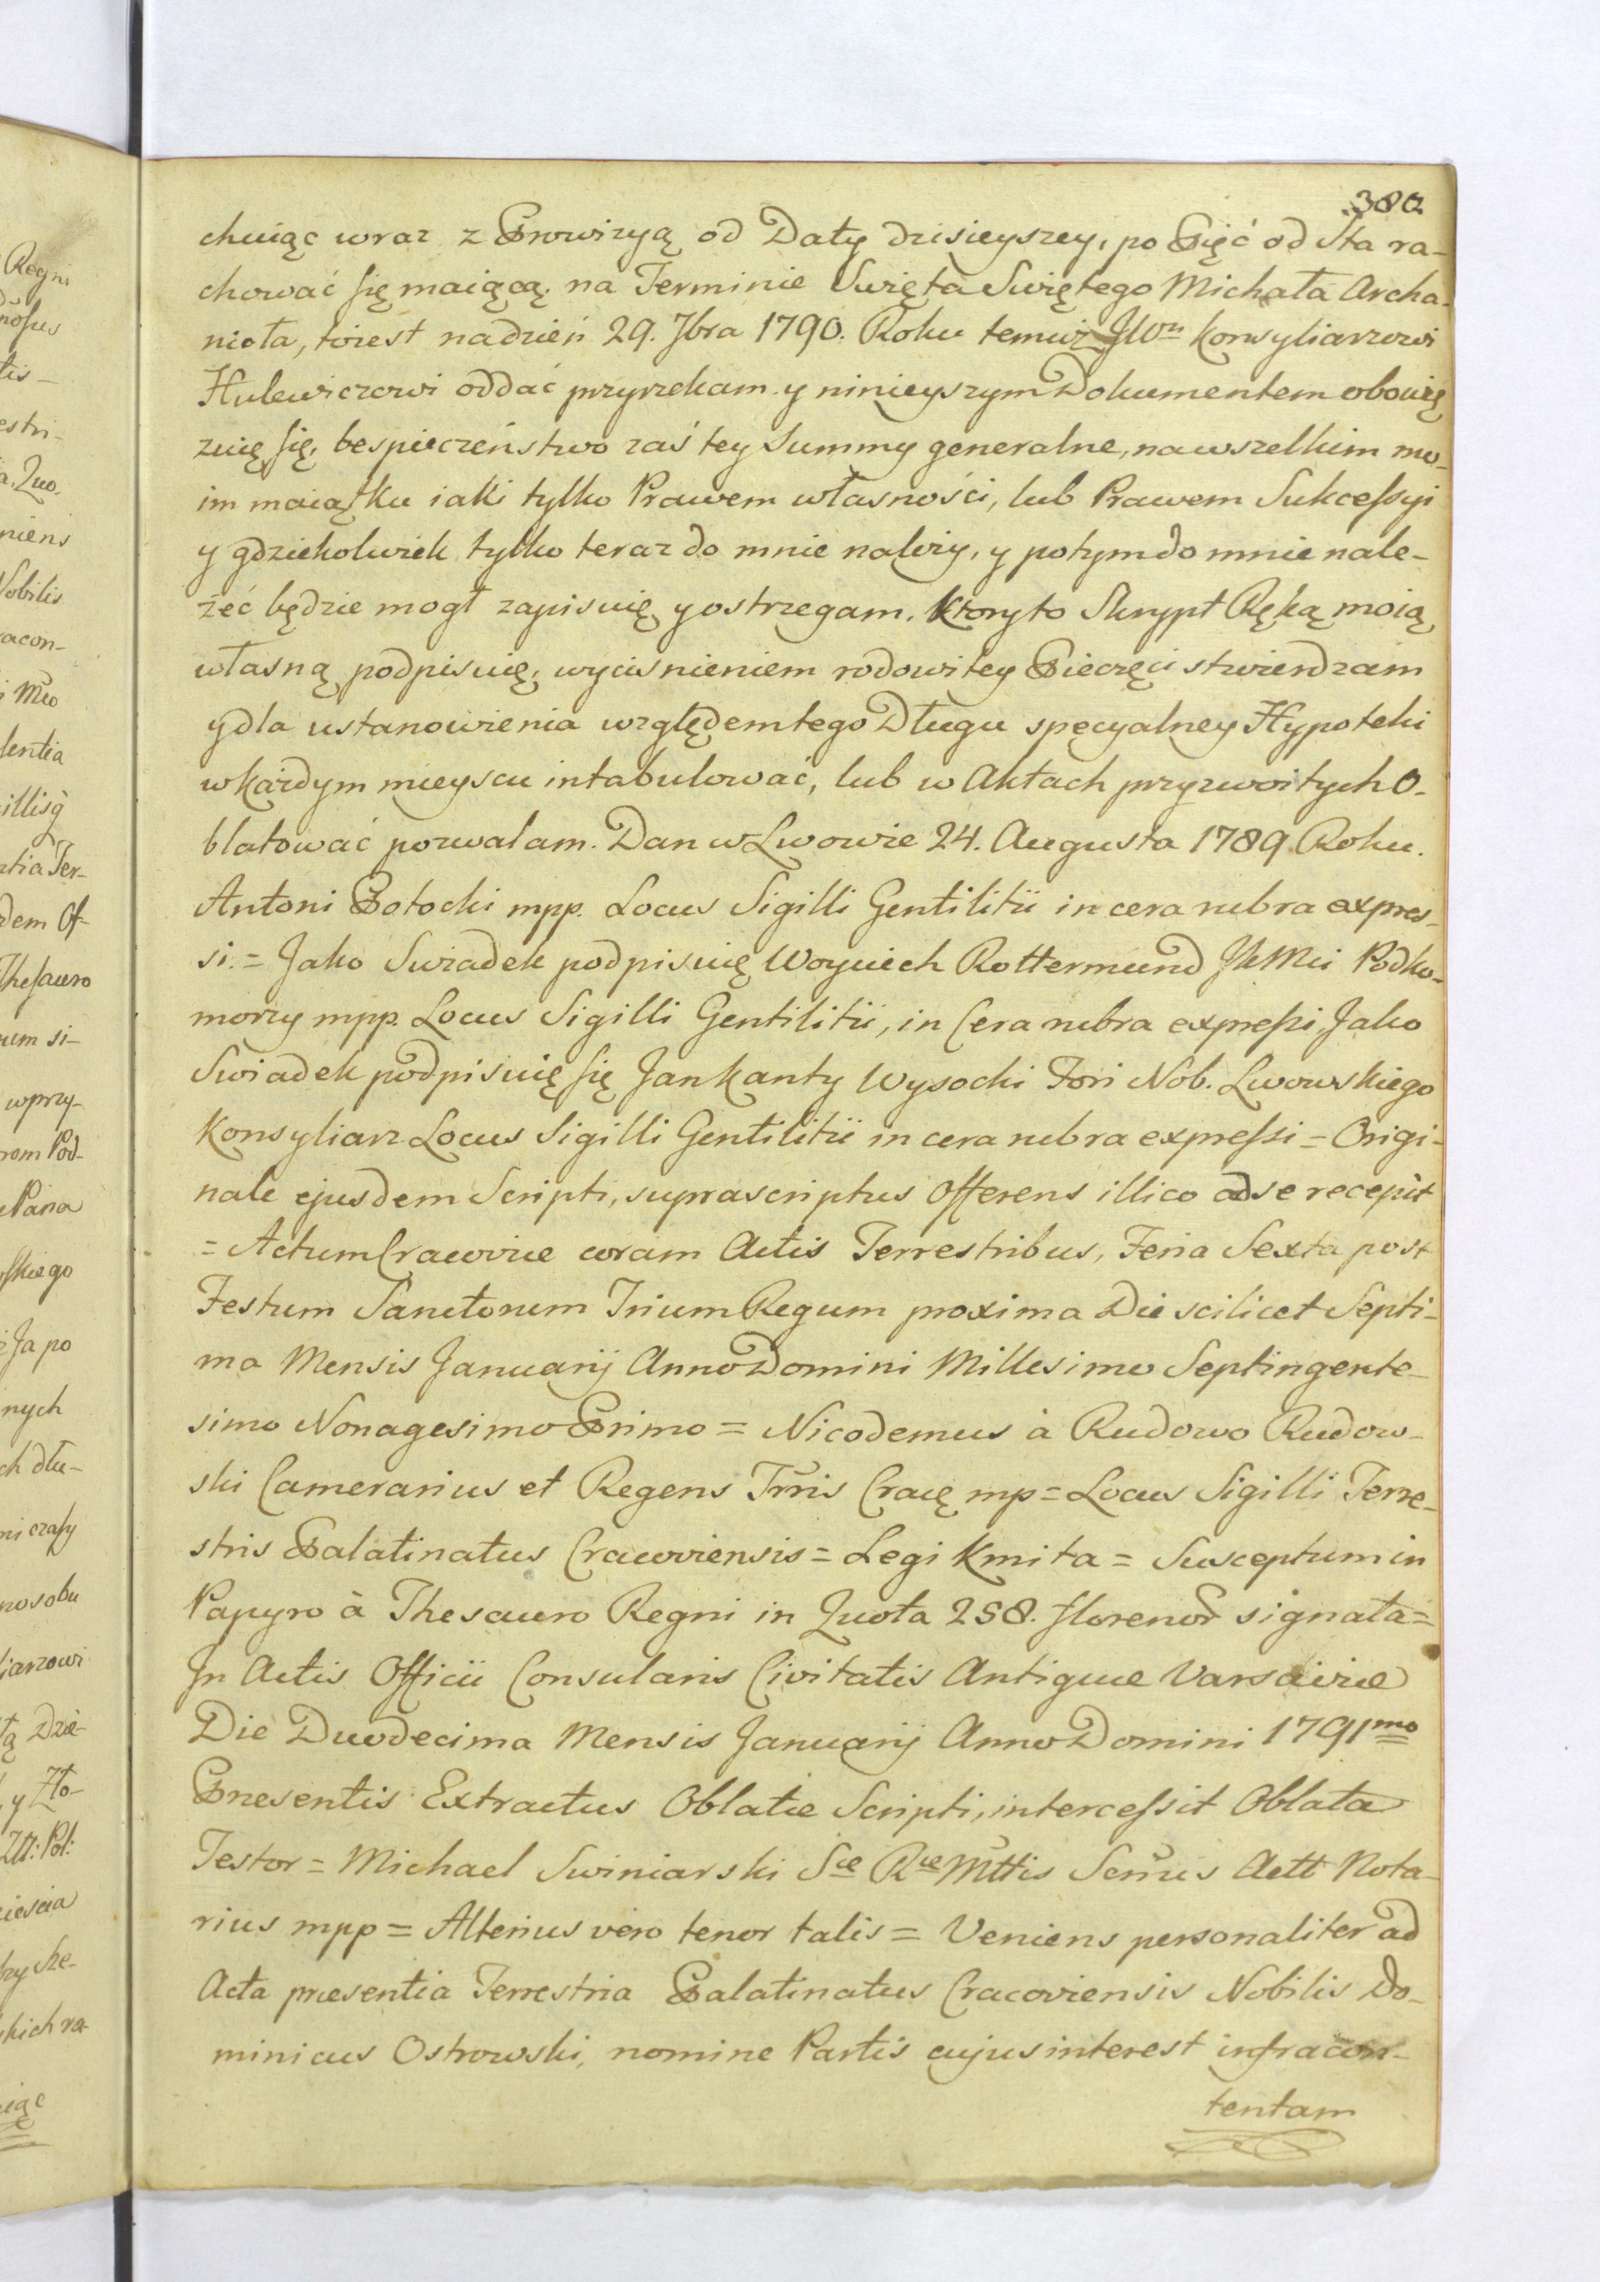 380
chuiąc wraz z Prowizyą od Daty dzisieyszey, po Pięć od Sta ra-
chować się maiącą, na Terminie Swięta Swiętego Michała Archa-
nioła, toiest nadzień 29. 7bra 1790. Roku temuż JWu Konsyliarzowi
Hulewiczowi oddać przyrzekam y ninieyszym Dokumentem obowię
zuię się, bespieczeństwo zaś tey Summy generalne, nawszelkim mo-
im maiątku iaki tylko Prawem własności, lub Prawem Sukcessyi
y gdziekolwiek tylko teraz do mnie należy, y potym do mnie nale-
żeć będzie mogł zapisuię y ostrzegam. Ktory to Skrypt Ręką moią
własną podpisuię, wyciśnieniem rodowitey Pieczęci stwierdzam
y dla ustanowienia względem tego Długu specyalney Hypoteki
w każdym mieyscu intabulować, lub w Aktach przyzwoitych O-
blatować pozwalam. Dan w Lwowie 24. Augusta 1789 Roku.
Antoni Potocki mpp. Locus Sigilli Gentilitii in cera rubra expres-
si. = Jako Swiadek podpisuię Woyciech Rottermund JKMci Podko-
morzy mpp. Locus Sigilli Gentilitii, in Cera rubra expressi, Jako
Swiadek podpisuię się Jan Kanty Wysocki Fori Nob. Lwowskiego
Konsyliarz Locus Sigilli Gentilitii in cera rubra expressi = Origi-
nale ejusdem Scripti, suprascriptus Offerens illico ad se recepit
= Actum Cracoviæ coram Actis Terrestribus, Feria Sexta post
Festum Sanctorum Trium Regum proxima Die scilicet Septi-
ma Mensis Januarij Anno Domini Millesimo Septingente-
simo Nonagesimo Primo = Nicodemus à Rudowo Rudow-
ski Camerarius et Regens Trris Craię mp = Locus Sigilli Terre-
stris Palatinatus Cracoviensis = Legi Kmita = Susceptum in
Papyro à Thesauro Regni in Quota 258. florenor signata =
In Actis Officii Consularis Civitatis Antiquæ Varsaviæ
Die Duodecima Mensis Januarij Anno Domini 1791mo
Præsentis Extractus Oblatæ Scripti, intercessit Oblata
Testor = Michael Swiniarski Sæ Ræ Mttis Serius Actt Nota-
rius mpp = Alterius vero tenor talis = Veniens personaliter ad
Acta præsentia Terrestria Palatinatus Cracoviensis Nobilis Do-
minicus Ostrowski, nomine Partis cujus interest infracon-
tentam